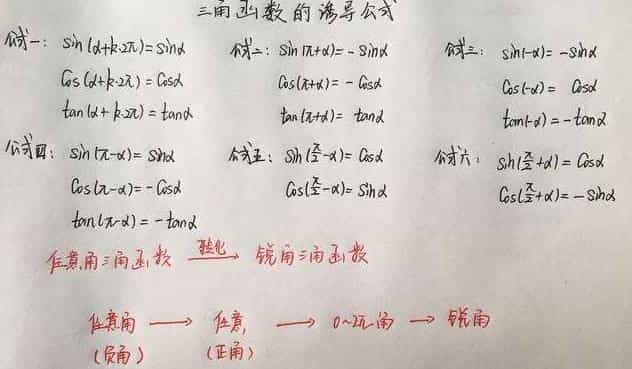 三角函数的诱导公式
公式一: sin(α+k·2π)=sinα
cos(α+k·2π)=cosα
tan(α+k·2π)=tanα
公式二: sin(π+α)=-sinα
cos(π+α)=-cosα
tan(π+α)=tanα
公式三: sin(-α)=-sinα
cos(-α)=cosα
tan(-α)=-tanα
公式四: sin(π-α)=sinα
cos(π-α)=-cosα
tan(π-α)=-tanα
公式五: sin(π/2-α)=cosα
cos(π/2-α)=sinα
公式六: sin(π/2+α)=cosα
cos(π/2+α)=-sinα
任意角三角函数 转化→ 锐角三角函数
任意角 → 任意 → 0~2π角 → 锐角
(负角) (正角)